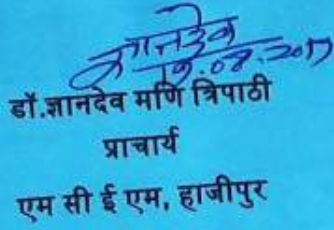 ज्ञानदेव
19.08.2017
डॉ.ज्ञानदेव मणि त्रिपाठी
प्राचार्य
एम सी ई एम, हाजीपुर